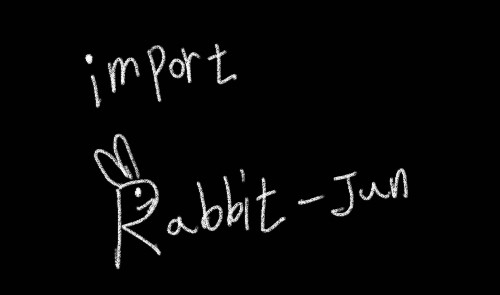 import
Rabbit-Jun